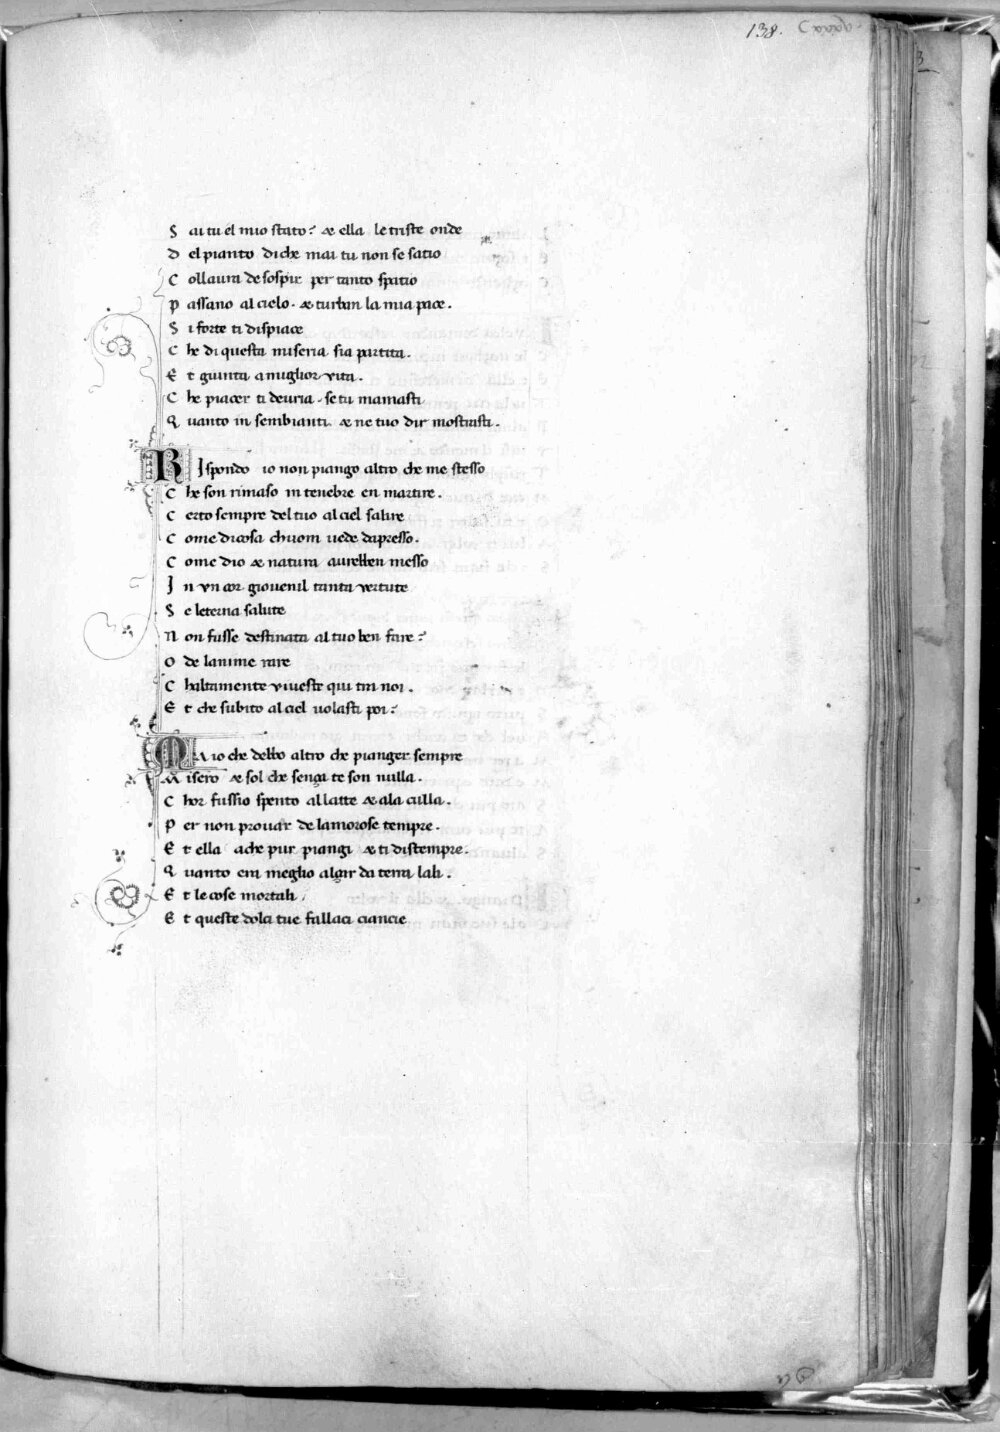 138.
S ai tu el mio stato? & ella le triste onde
D el pianto di che mai tu non se satio
C ollaura de sospir per tanto spatio
P assano al cielo. & turban la mia pace.
S i forte ti dispiace
C he di questa miseria sia partita.
E t giunta a miglior vita.
C he piacer ti devria. se tu mamasti
Q uanto in sembianti. & ne tuo dir mostrasti.
R Ispondo io non piango altro che me stesso
C he son rimaso in tenebre en martire.
C erto sempre del tuo al ciel salire
C ome di cosa chuom uede dapresso.
C ome dio & natura aurebben messo
I n vn cor giouenil tanta vertute
S e leterna salute
N on fusse destinata al tuo ben fare?
O de lanime rare
C haltamente viueste qui tra noi.
E t che subito al ciel uolasti poi?
M A io che debbo altro che pianger sempre
M isero & sol che senza te son nulla.
C hor fussio spento al latte & ala culla.
P er non prouar de lamorose tempre.
E t ella ache pur piangi & ti distempre.
Q uanto era meglio alzar da terra lali.
E t le cose mortali
E t queste dolci tue fallaci ciancie